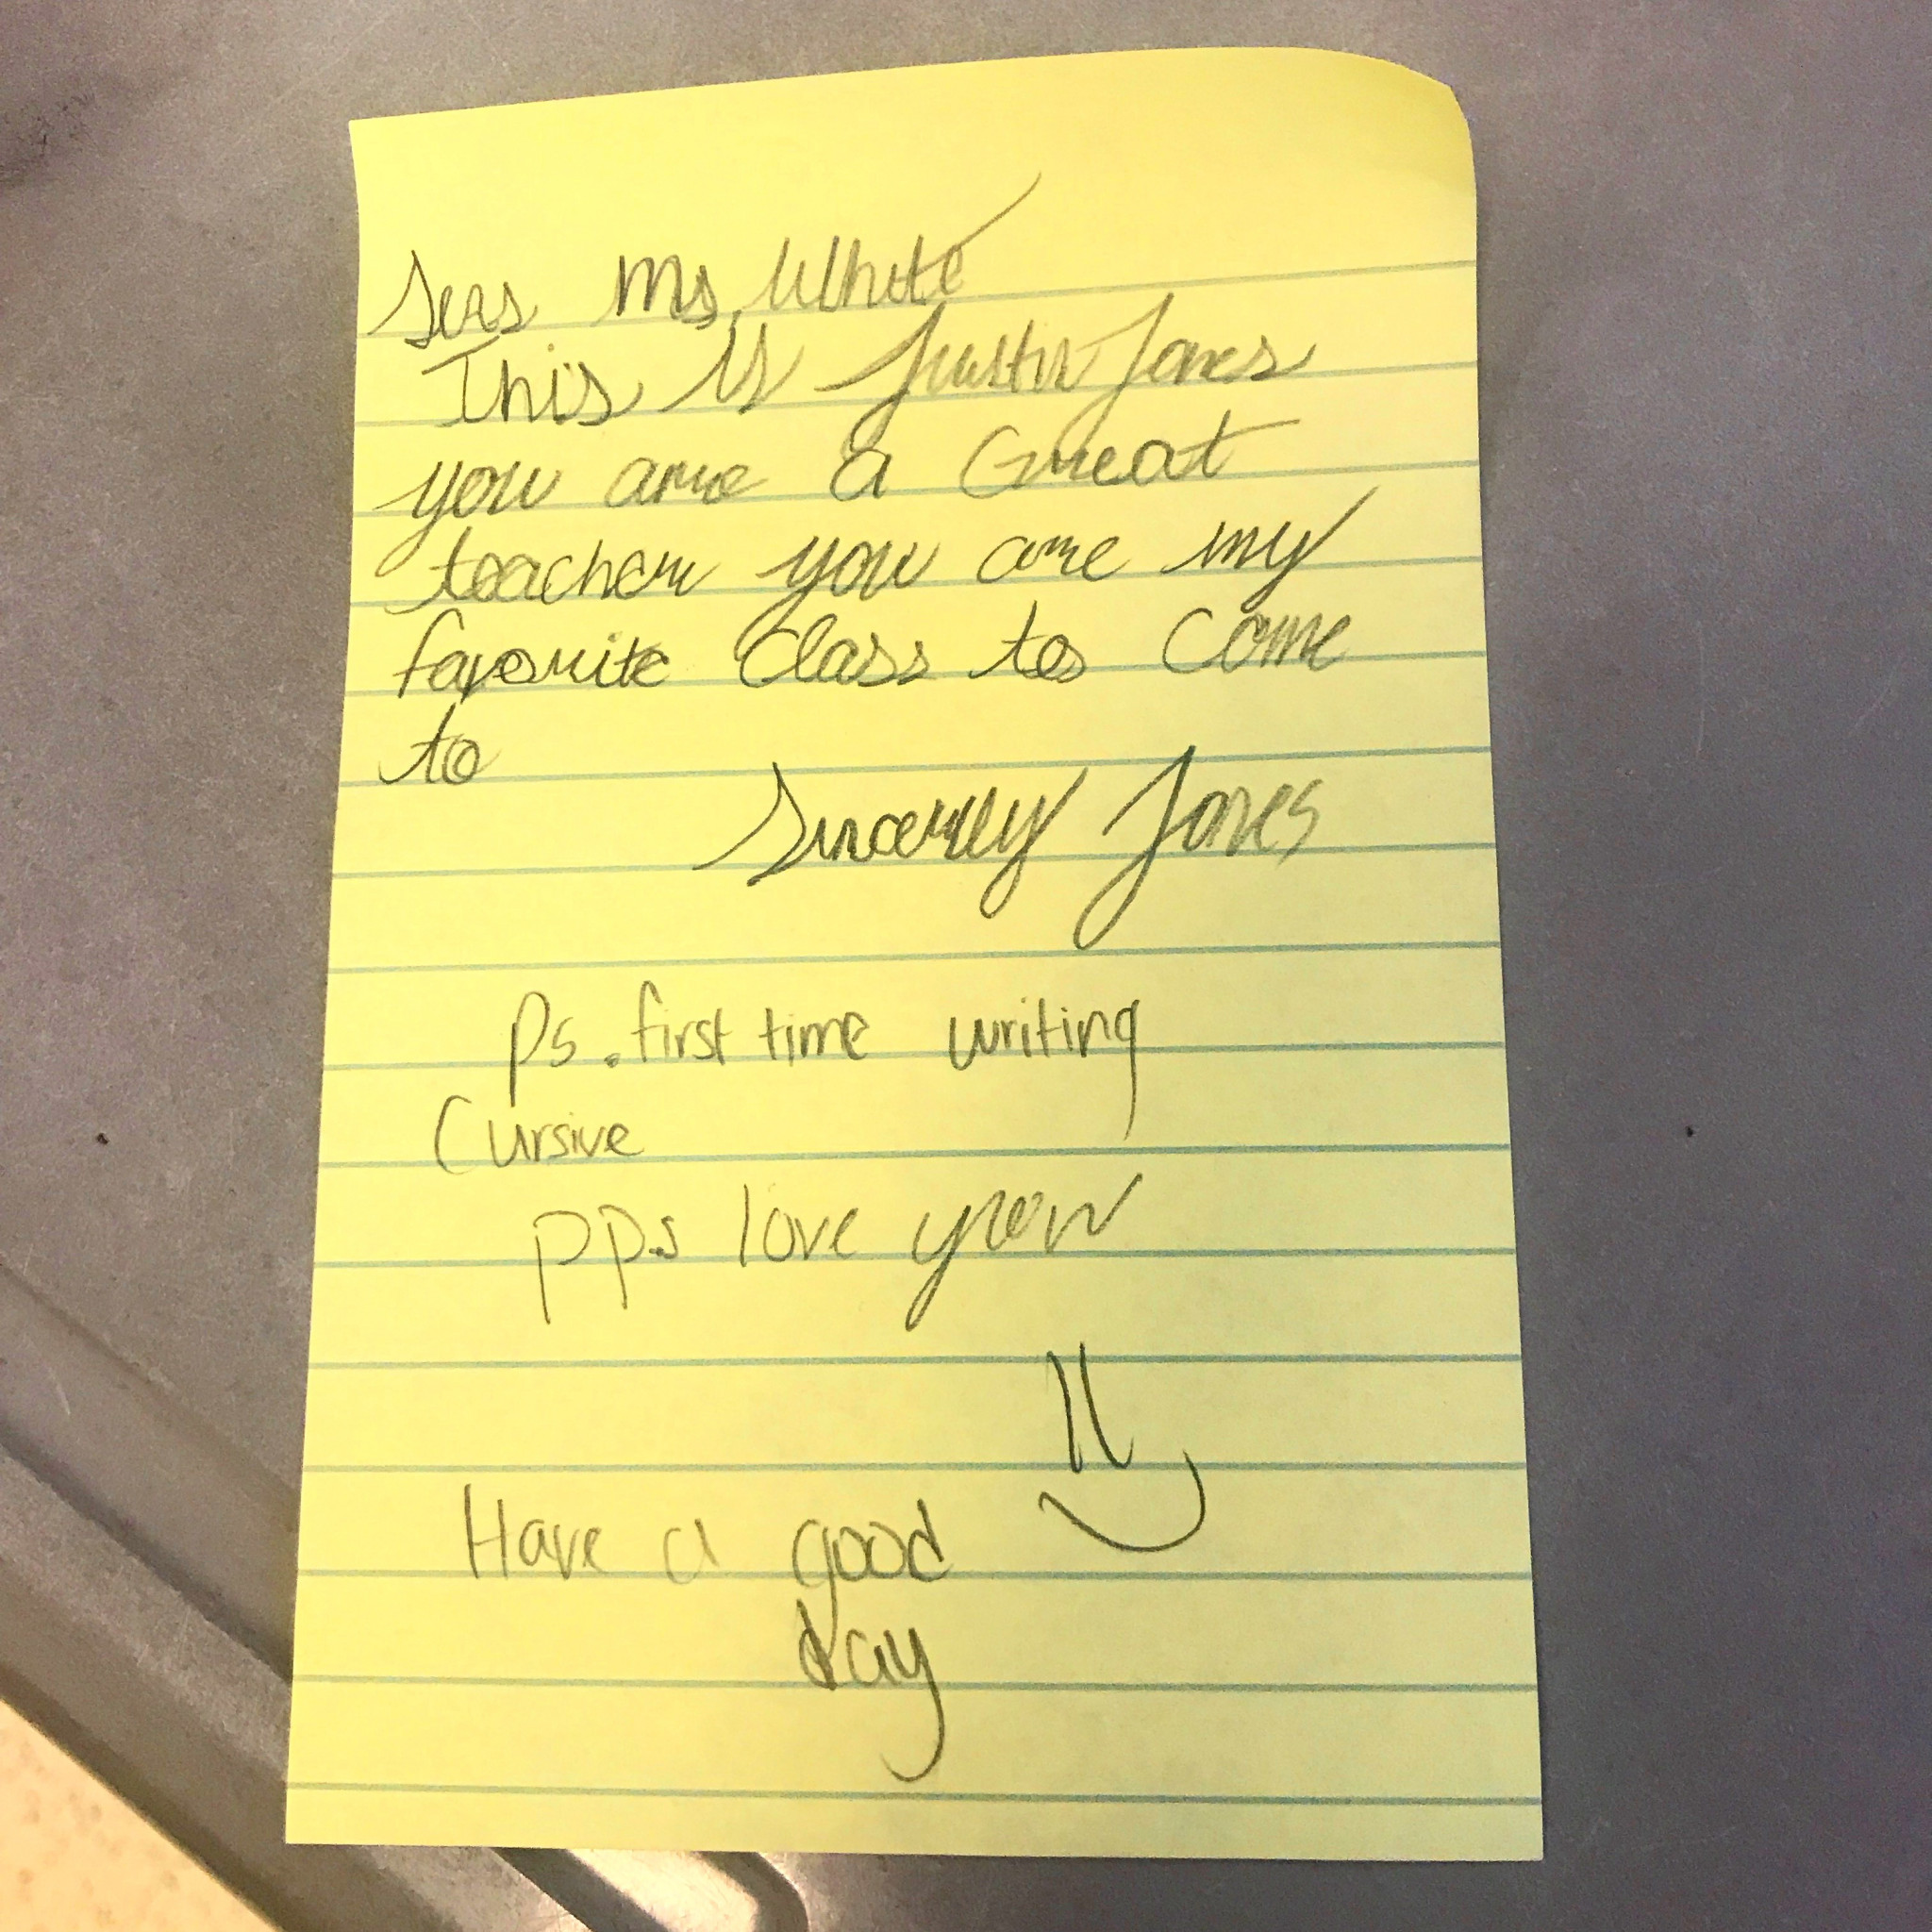 Ms. White
This is Justin Jones
you are a Great
teacher you are my
favorite Class to Come
to
Sincerely Jones
Ps. first time writing
Cursive
pp.s love you
Have a good
day